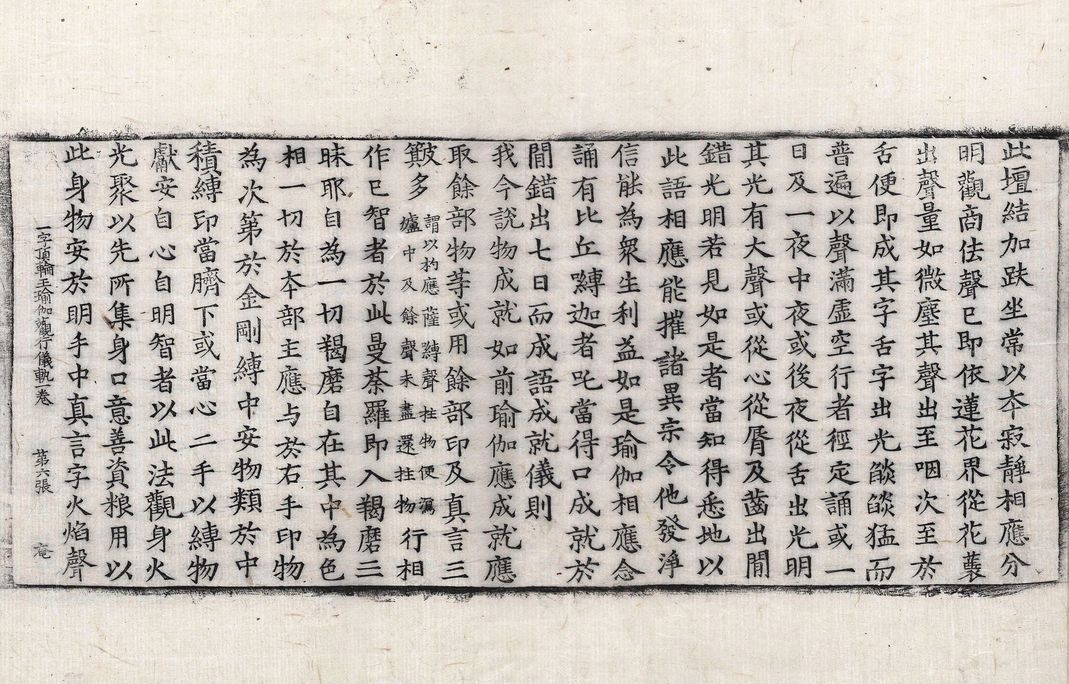 此壇結加趺坐常以夲寂靜相應分
明觀商佉聲已即依蓮花界從花蘂
出聲量如微塵其聲出至咽次至於
舌便即成其字舌字出光燄燄猛而
普遍以聲滿虛空行者徑定誦或一
日及一夜中夜或後夜從舌出光明
其光有大聲或從心從脣及齒出閒
錯光明若見如是者當知得悉地以
此語相應能摧諸異宗令他發淨
信能為衆生利益如是瑜伽相應念
誦有比丘嚩迦者叱當得口成就於
閒錯出七日而成語成就儀則
我今說物成就如前瑜伽應成就應
取餘部物等或用餘部印及真言三
簸多謂以杓應薩嚩聲拄物便瀉
爐中及餘聲未盡還拄物行相
作已智者於此曼荼羅即入羯磨三
昧耶自為一切羯磨自在其中為色
相一切於夲部主應与於右手印物
為次第於金剛縛中安物類於中
積縛印當臍下或當心二手以縛物
獻安自心自明智者以此法觀身火
光聚以先所集身口意善資粮用以
此身物安於明手中真言字火焰聲
一字頂輪王瑜伽觀行儀軌一卷 第六張 庵